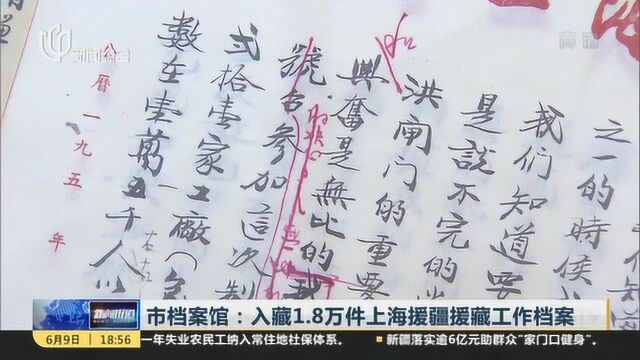 新闻综合
高清
之一的時侯
我们知道要
是說不完的
洪闸门的重要
興奮是無比的我
號召参加這次
弍拾壹家工廠(
數在壹萬五千人以
左右
公曆一九五 年
市档案馆：入藏1.8万件上海援疆援藏工作档案
6月9日 18:56 一年失业农民工纳入常住地社保体系。 ▪新疆落实逾6亿元助群众“家门口健身”。